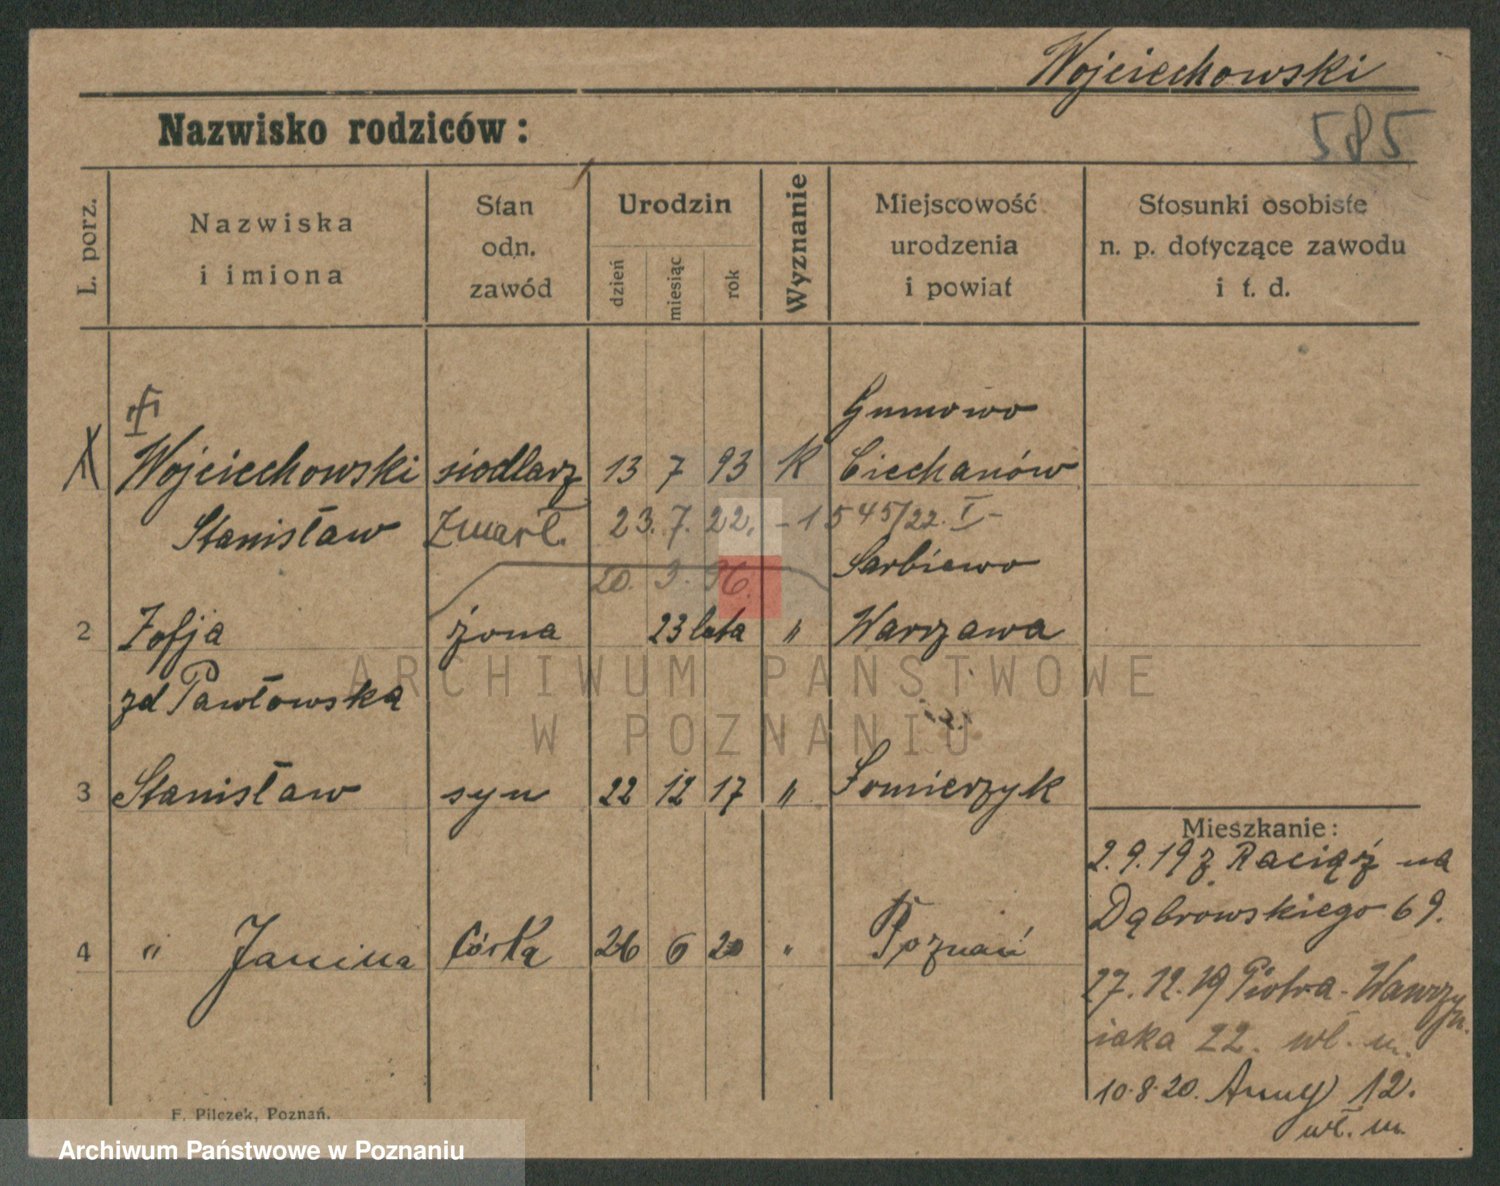 Wojciechowski
Nazwisko rodziców:
585
L. porz.
Nazwiska
i imiona
Stan
odn.
zawód
Urodzin
dzień
miesiąc
rok
Wyznanie
Miejscowość
urodzenia
i powiat
Stosunki osobiste
n. p. dotyczące zawodu
i t. d.
Gumowo
Wojciechowski siodlarz 13 7 93 K Ciechanów
Stanisław Zmarł. 23. 7. 22. - 1545/22. I -
20. 9. 96. Sarbiewo
2 Zofja żona 23 lata " Warszawa
zd Pawłowska
3 Stanisław syn 22 12 17 "
Mieszkanie:
2.9.19 z Raciąż na
Dąbrowskiego 69.
4 " Janina córka 26 6 20 " Poznań
27.12.19 Piotra-Wawrzyn
iaka 22. wł. m.
10.8.20. Anny 12.
wł. m.
F. Pilczek, Poznań.
ARCHIWUM PAŃSTWOWE
W POZNANIU
Archiwum Państwowe w Poznaniu